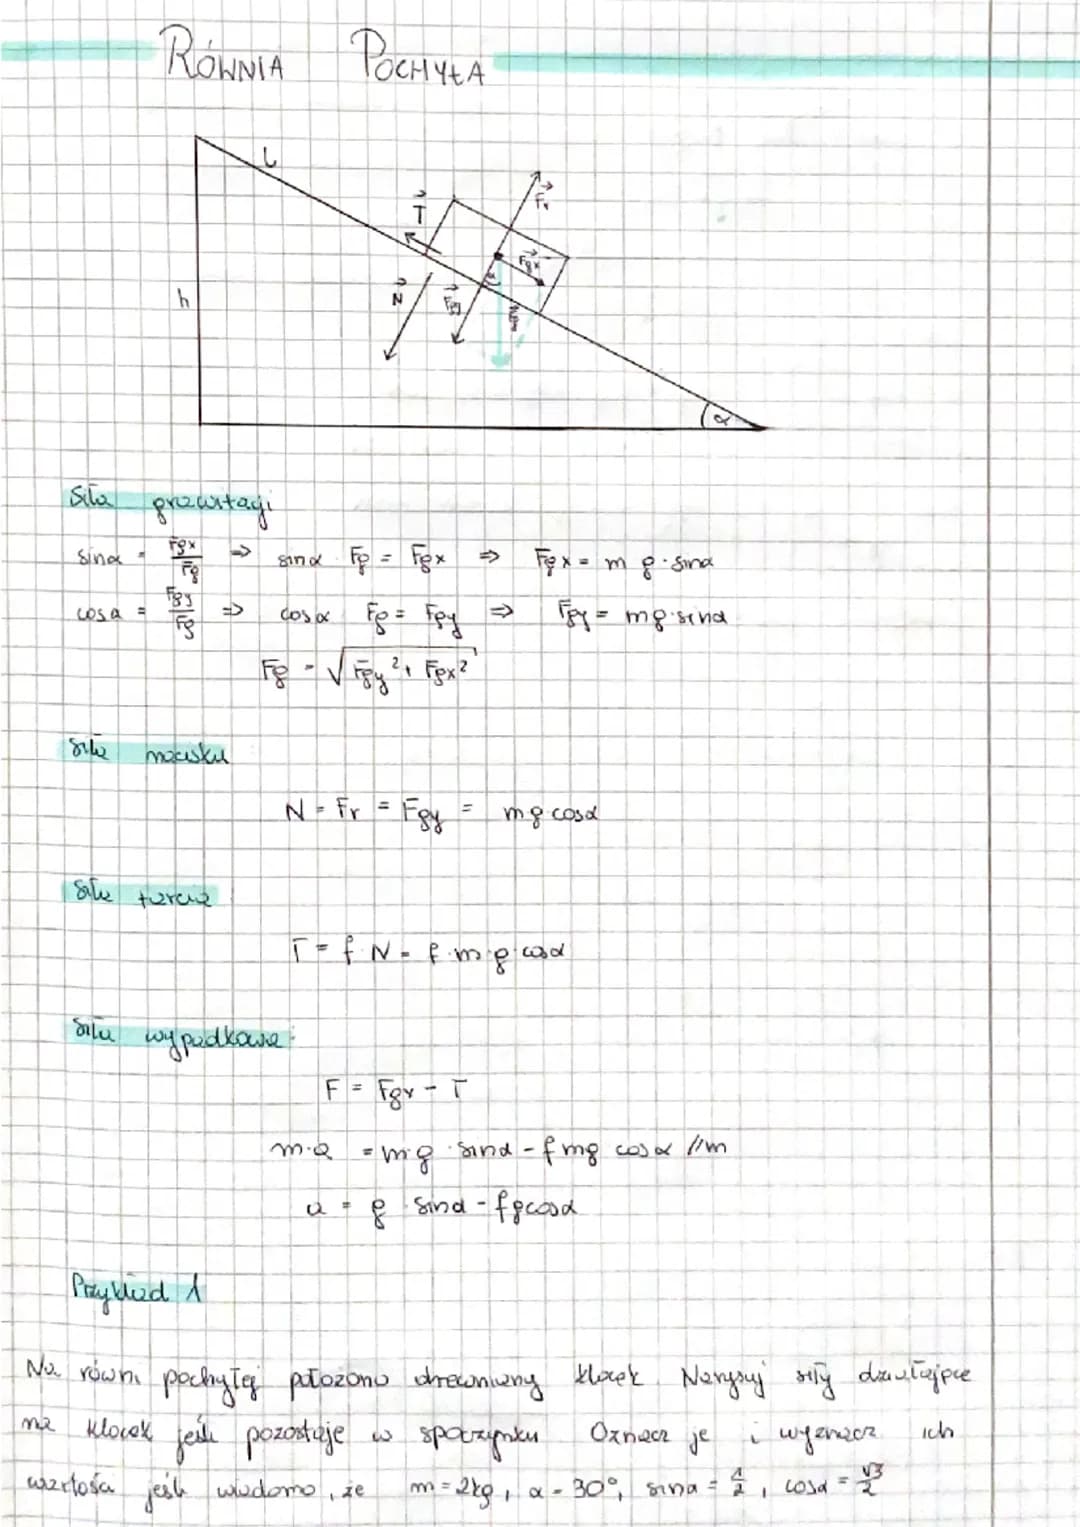 RÓWNIA POCHYŁA
l
T
Fr
Fgx
h
N
Fgy
α
α
Siła grawitacji
sinα = Fgx/Fg ⇒ sinα · Fg = Fgx ⇒ Fgx = m g · sinα
cosα = Fgy/Fg ⇒ cosα Fg = Fgy ⇒ Fgy = mg · sinα
Fg = √Fgy² + Fgx²
Siła nacisku
N = Fr = Fgy = mg · cosα
Siła tarcia
T = f · N = f · m · g · cosα
Siła wypadkowa:
F = Fgx - T
m·a = m·g · sinα - f mg cosα //m
a = g · sinα - fgcosα
Przykład 1
Na równi pochyłej położono drewniany klocek. Narysuj siły działające
na klocek jeśli pozostaje w spoczynku Oznacz je i wyznacz ich
wartości jeśli wiadomo, że m = 2kg, α = 30°, sinα = 1/2, cosα = √3/2